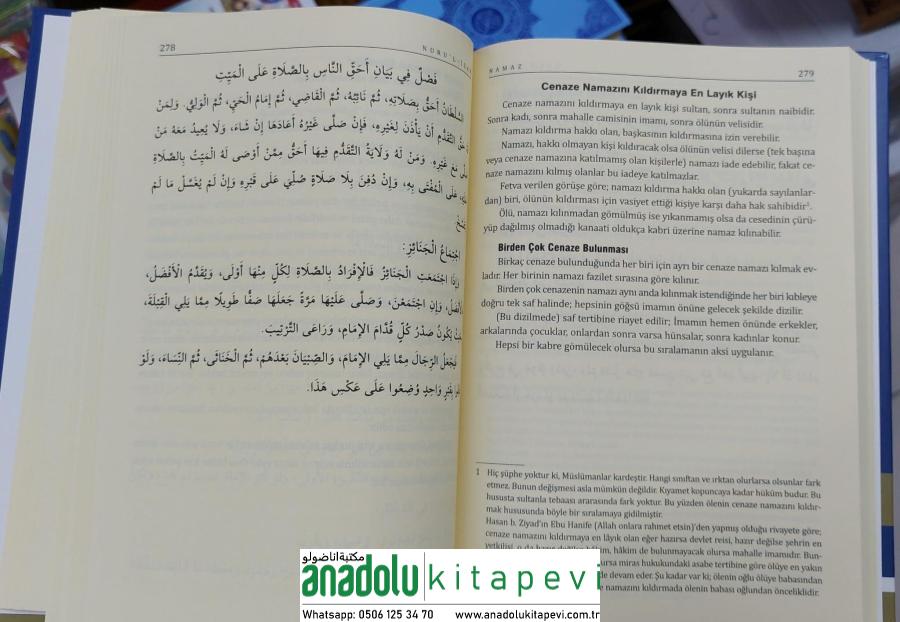 278
NURU'L-
فَصْلٌ فِي بَيَانِ أَحَقِّ النَّاسِ بِالصَّلَاةِ عَلَى الْمَيِّتِ
أَحَقُّ بِصَلَاتِهِ، ثُمَّ نَائِبُهُ، ثُمَّ الْقَاضِي، ثُمَّ إِمَامُ الْحَيِّ، ثُمَّ الْوَلِيُّ. وَلِمَنْ
التَّقَدُّمِ أَنْ يَأْذَنَ لِغَيْرِهِ، فَإِنْ صَلَّى غَيْرُهُ أَعَادَهَا إِنْ شَاءَ، وَلَا يُعِيدُ مَعَهُ مَنْ
مَعَ غَيْرِهِ. وَمَنْ لَهُ وَلَايَةُ التَّقَدُّمِ فِيهَا أَحَقُّ مِمَّنْ أَوْصَى لَهُ الْمَيِّتُ بِالصَّلَاةِ
عَلَى الْمُفْتَى بِهِ، وَإِنْ دُفِنَ بِلَا صَلَاةٍ صُلِّيَ عَلَى قَبْرِهِ وَإِنْ لَمْ يُغَسَّلْ مَا لَمْ
اجْتِمَاعُ الْجَنَائِزِ:
وَإِذَا اجْتَمَعَتِ الْجَنَائِزُ فَالْإِفْرَادُ بِالصَّلَاةِ لِكُلٍّ مِنْهَا أَوْلَى، وَيُقَدَّمُ الْأَفْضَلُ،
وَإِنِ اجْتَمَعْنَ، وَصَلَّى عَلَيْهَا مَرَّةً جَعَلَهَا صَفًّا طَوِيلًا مِمَّا يَلِي الْقِبْلَةَ،
يَكُونُ صَدْرُ كُلٍّ قُدَّامَ الْإِمَامِ، وَرَاعَى التَّرْتِيبَ.
فَيَجْعَلُ الرِّجَالَ مِمَّا يَلِي الْإِمَامَ، وَالصِّبْيَانَ بَعْدَهُمْ، ثُمَّ الْخَنَاثَى، ثُمَّ النِّسَاءَ، وَلَوْ
بِقَبْرٍ وَاحِدٍ وُضِعُوا عَلَى عَكْسِ هَذَا.
NAMAZ
279
Cenaze Namazını Kıldırmaya En Layık Kişi
Cenaze namazını kıldırmaya en layık kişi sultan, sonra sultanın naibidir.
Sonra kadı, sonra mahalle camisinin imamı, sonra ölünün velisidir.
Namazı kıldırma hakkı olan, başkasının kıldırmasına izin verebilir.
Namazı, hakkı olmayan kişi kıldıracak olsa ölünün velisi dilerse (tek başına
veya cenaze namazına katılmamış olan kişilerle) namazı iade edebilir, fakat ce-
naze namazını kılmış olanlar bu iadeye katılmazlar.
Fetva verilen görüşe göre; namazı kıldırma hakkı olan (yukarda sayılanlar-
dan) biri, ölünün kıldırması için vasiyet ettiği kişiye karşı daha hak sahibidir¹.
Ölü, namazı kılınmadan gömülmüş ise yıkanmamış olsa da cesedinin çürü-
yüp dağılmış olmadığı kanaati oldukça kabri üzerine namaz kılınabilir.
Birden Çok Cenaze Bulunması
Birkaç cenaze bulunduğunda her biri için ayrı bir cenaze namazı kılmak ev-
ladır. Her birinin namazı fazilet sırasına göre kılınır.
Birden çok cenazenin namazı aynı anda kılınmak istendiğinde her biri kıbleye
doğru tek saf halinde; hepsinin göğsü imamın önüne gelecek şekilde dizilir.
(Bu dizilmede) saf tertibine riayet edilir; İmamın hemen önünde erkekler,
arkalarında çocuklar, onlardan sonra varsa hünsalar, sonra kadınlar konur.
Hepsi bir kabre gömülecek olursa bu sıralamanın aksi uygulanır.
1 Hiç şüphe yoktur ki, Müslümanlar kardeştir. Hangi sınıftan ve ırktan olurlarsa olsunlar fark
etmez. Bunun değişmesi asla mümkün değildir. Kıyamet kopuncaya kadar hüküm budur. Bu
hususta sultanla tebaası ararasında fark yoktur. Bu yüzden ölenin cenaze namazını kıldır-
mak hususunda böyle bir sıralamaya gidilmiştir.
Hasan b. Ziyad'ın Ebu Hanife (Allah onlara rahmet etsin)'den yapmış olduğu rivayete göre;
cenaze namazını kıldırmaya en lâyık olan eğer hazırsa devlet reisi, hazır değilse şehrin en
yetkilisi, o da hazır değilse hâkim, hâkim de bulunmayacak olursa mahalle imamıdır. Bun-
ursa miras hukukundaki asabe tertibine göre ölüye en yakın
de devam eder. Şu kadar var ki; ölenin oğlu ölüye babasından
namazını kıldırmada ölenin babası oğlundan önceliklidir.
مكتبة اناضولو
anadolu kitapevi
Whatsapp: 0506 125 34 70 www.anadolukitapevi.com.tr